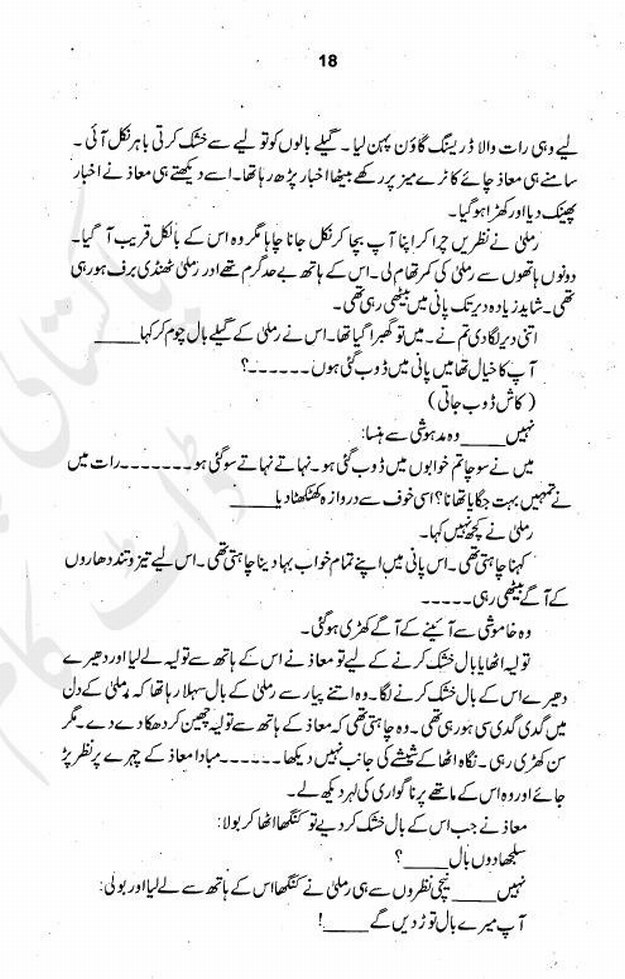 18
لیے وہی رات والا ڈریسنگ گاؤن پہن لیا ۔ گیلے بالوں کو تولیے سے خشک کرتی باہر نکل آئی ۔
سامنے ہی معاذ چائے کا ٹرے میز پر رکھے بیٹھا اخبار پڑھ رہا تھا۔ اسے دیکھتے ہی معاذ نے اخبار
پھینک دیا اور کھڑا ہو گیا۔
رملیٰ نے نظریں چرا کر اپنا آپ بچا کر نکل جانا چاہا مگر وہ اس کے بالکل قریب آ گیا۔
دونوں ہاتھوں سے رملیٰ کی کمر تھام لی۔ اس کے ہاتھ بے حد گرم تھے اور رملیٰ ٹھنڈی برف ہو رہی
تھی۔ شاید زیادہ دیر تک پانی میں بیٹھی رہی تھی۔
اتنی دیر لگا دی تم نے۔ میں تو گھبرا گیا تھا۔ اس نے رملیٰ کے گیلے بال چوم کر کہا____
آپ کا خیال تھا میں پانی میں ڈوب گئی ہوں ۔۔۔۔۔۔؟
(کاش ڈوب جاتی)
نہیں____ وہ مدہوشی سے ہنسا:
میں نے سوچا تم خوابوں میں ڈوب گئی ہو۔ نہاتے نہاتے سو گئی ہو۔۔۔۔۔۔۔ رات میں
نے تمہیں بہت جگایا تھا نا؟ اسی خوف سے دروازہ کھٹکھٹا دیا____
رملیٰ نے کچھ نہیں کہا۔
کہنا چاہتی تھی۔ اس پانی میں اپنے تمام خواب بہا دینا چاہتی تھی۔ اس لیے تیز و تند دھاروں
کے آگے بیٹھی رہی۔۔۔۔۔
وہ خاموشی سے آئینے کے آگے کھڑی ہو گئی۔
تولیہ اٹھایا بال خشک کرنے کے لیے تو معاذ نے اس کے ہاتھ سے تولیہ لے لیا اور دھیرے
دھیرے اس کے بال خشک کرنے لگا۔ وہ اتنے پیار سے رملیٰ کے بال سہلا رہا تھا کہ رملیٰ کے دل
میں گدی گدی سی ہو رہی تھی۔ وہ چاہتی تھی کہ معاذ کے ہاتھ سے تولیہ چھین کر دھکا دے دے۔ مگر
سن کھڑی رہی۔ نگاہ اٹھا کے شیشے کی جانب نہیں دیکھا ۔۔۔۔۔۔ مبادا معاذ کے چہرے پر نظر پڑ
جائے اور وہ اس کے ماتھے پر ناگواری کی لہر دیکھ لے۔
معاذ نے جب اس کے بال خشک کر دیے تو کنگھا اٹھا کر بولا:
سلجھا دوں بال____؟
نہیں____ نیچی نظروں سے ہی رملیٰ نے کنگھا اس کے ہاتھ سے لے لیا اور بولی:
آپ میرے بال توڑ دیں گے____!
پاکستانی
ڈاٹ کام